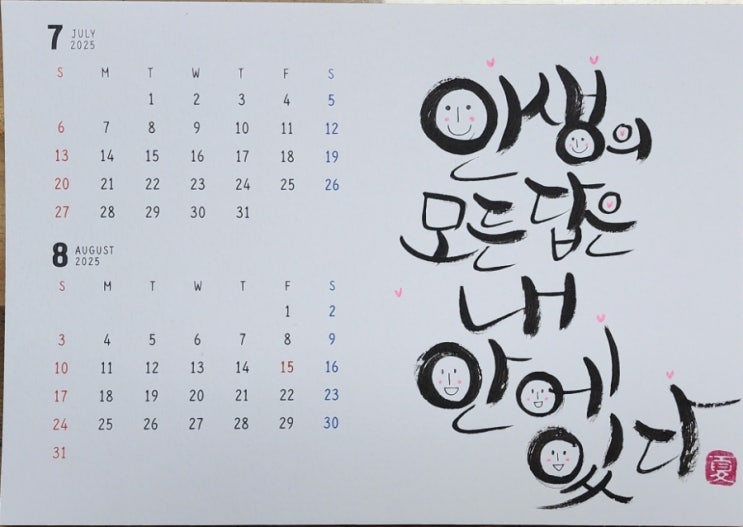 7 JULY
2025
S M T W T F S
1 2 3 4 5
6 7 8 9 10 11 12
13 14 15 16 17 18 19
20 21 22 23 24 25 26
27 28 29 30 31
8 AUGUST
2025
S M T W T F S
1 2
3 4 5 6 7 8 9
10 11 12 13 14 15 16
17 18 19 20 21 22 23
24 25 26 27 28 29 30
31
인생의
모든 답은
내
안에
있다
夏